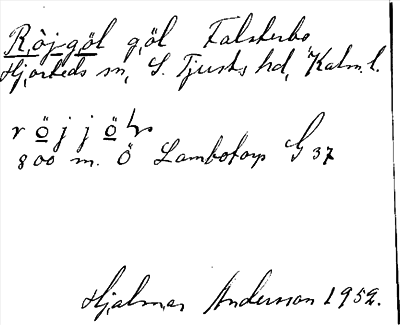 Röjgöl göl Falsterbo
Hjorteds sn, S. Tjusts hd, Kalm. l.
r ö j j ö l,
800 m. Ö Lambotorp G 37
Hjalmar Andersson 1952.